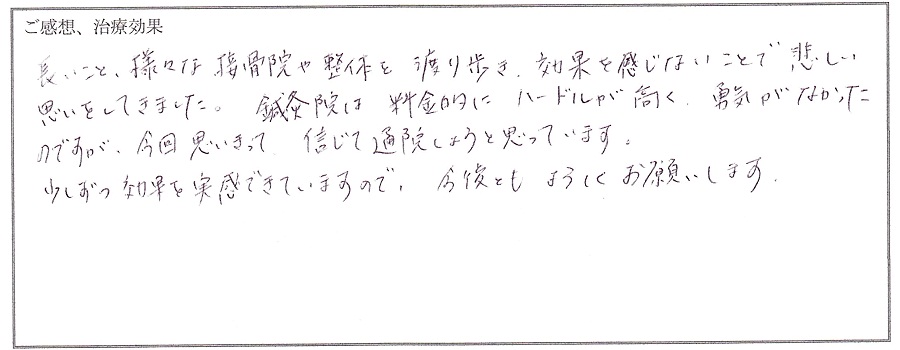 ご感想、治療効果
長いこと、様々な接骨院や整体を渡り歩き、効果を感じないことで悲しい
思いをしてきました。鍼灸院は料金的にハードルが高く、勇気がなかった
のですが、今回思いきって信じて通院しようと思っています。
少しずつ効果を実感できていますので、今後ともよろしくお願いします。